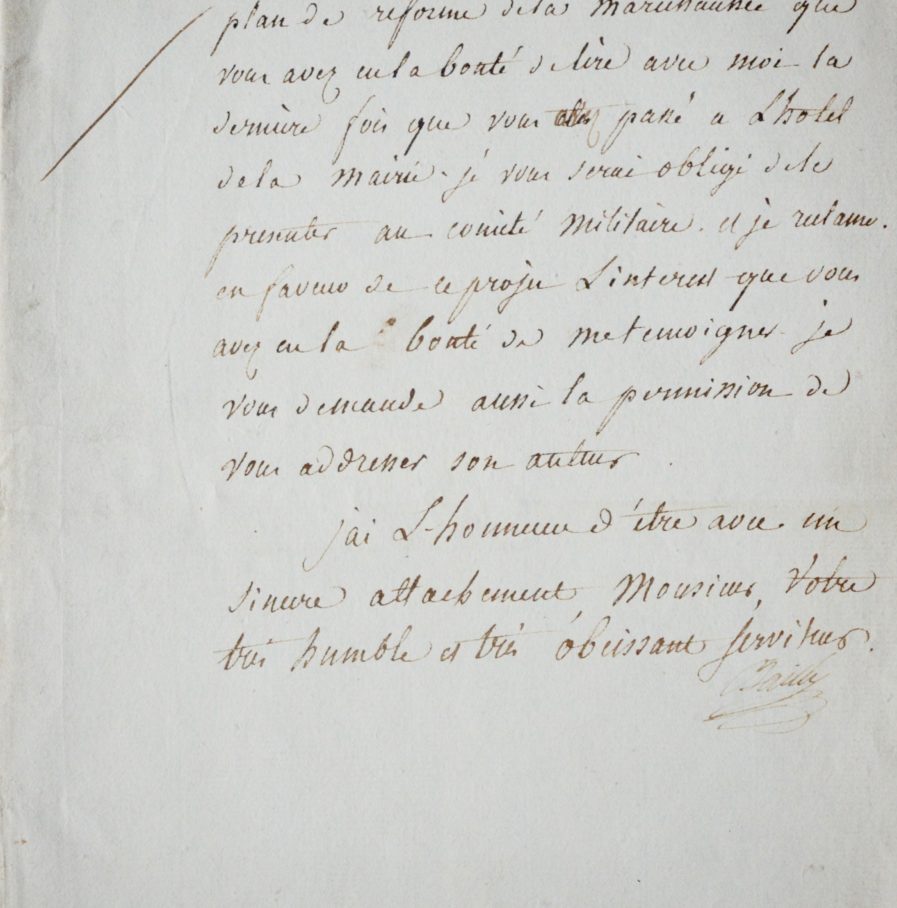 plan de reforme dela Marechaussée que
vous avez eu la bonté de lire avec moi la
derniere fois que vous etes passé a L'hotel
dela Mairie. je vous serai obligé dele
presenter au comité Militaire. et je reclame.
en faveur de ce projet L'interest que vous
avez eu la bonté de me temoigner. je
vous demande aussi la permission de
vous addresser son auteur.
j'ai L'honneur d'être avec un
sincere attachement Monsieur, Votre
trés humble et trés óbeissant serviteur.
Bailly